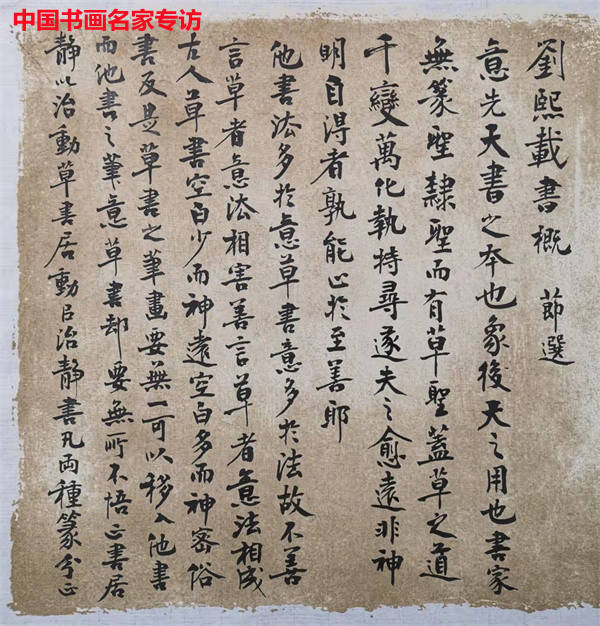 中国书画名家专访
劉熙載書概 節選
意先天書之本也象後天之用也書家
無篆聖隸聖而有草聖蓋草之道
千變萬化執持尋逐失之愈遠非神
明自得者孰能止於至善耶
他書法多於意草書意多於法故不善
言草者意法相害善言草者意法相成
古人草書空白少而神遠空白多而神密俗
書反是草書之筆畫要無一可以移入他書
而他書之筆意草書却要無所不悟正書居
靜以治動草書居動以治靜書凡両種篆分正